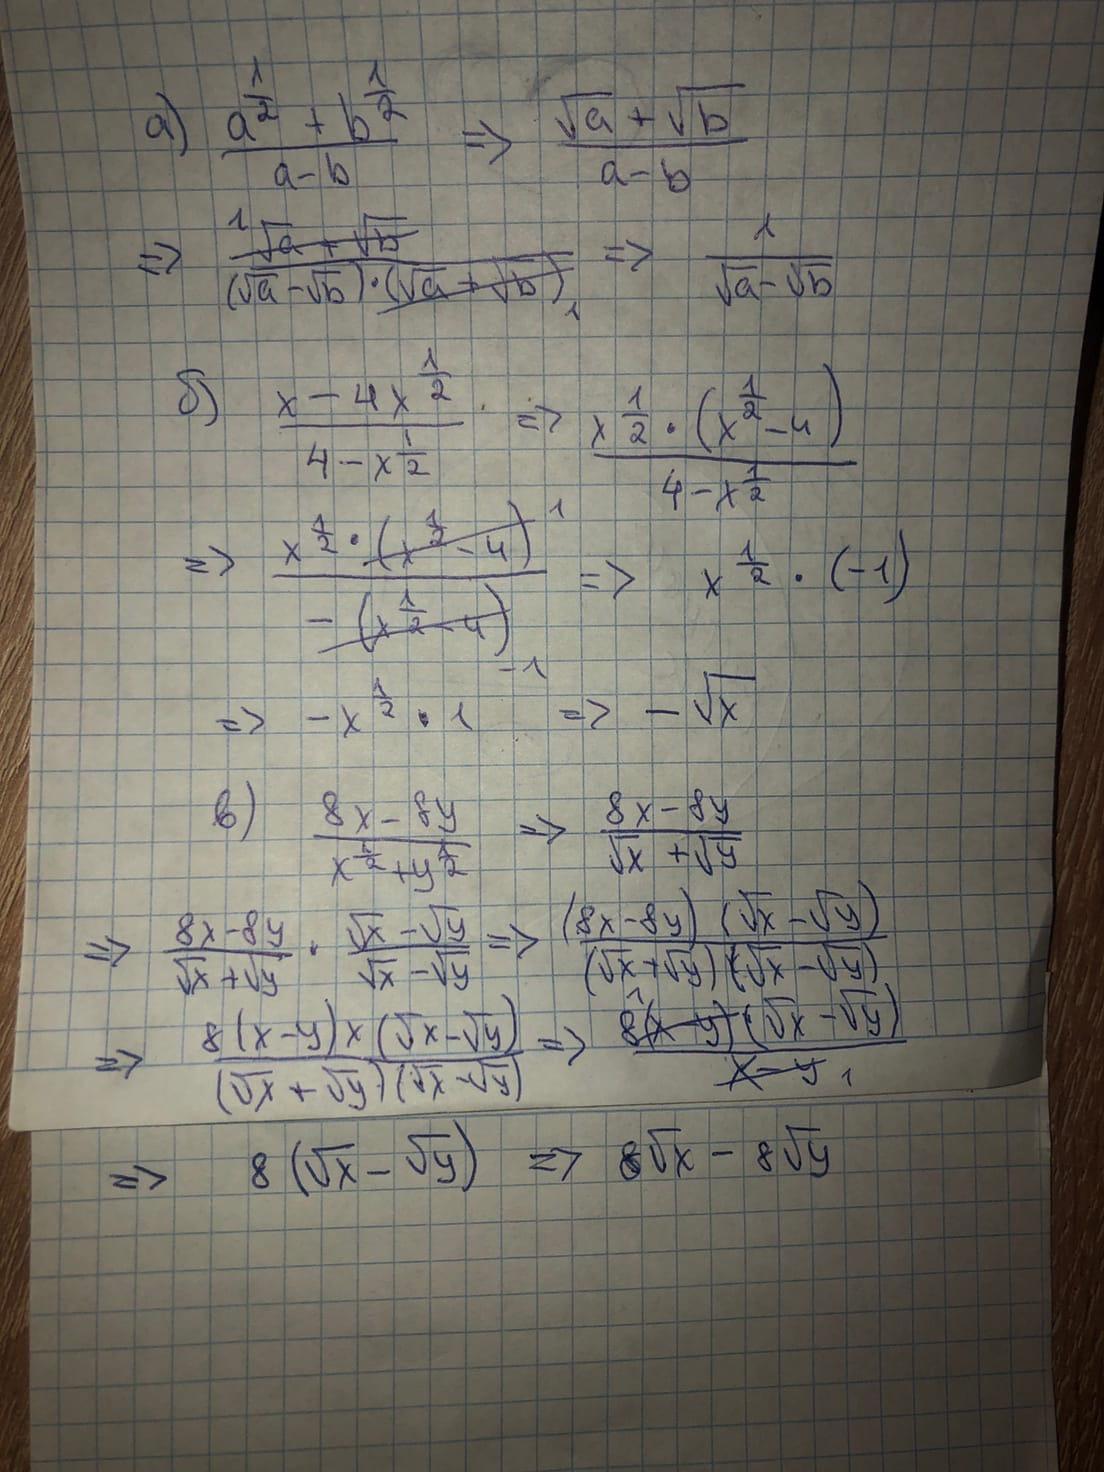 а) (a^(1/2) + b^(1/2))/(a-b) => (√a + √b)/(a-b)
=> (√a + √b)^1/((√a-√b)·(√a+√b))_1 => 1/(√a-√b)
б) (x-4x^(1/2))/(4-x^(1/2)) => (x^(1/2)·(x^(1/2)-4))/(4-x^(1/2))
=> (x^(1/2)·(x^(1/2)-4)^1)/(-(x^(1/2)-4))_-1 => x^(1/2)·(-1)
=> -x^(1/2)·1 => -√x
в) (8x-8y)/(x^(1/2)+y^(1/2)) => (8x-8y)/(√x+√y)
=> (8x-8y)/(√x+√y) · (√x-√y)/(√x-√y) => ((8x-8y)(√x-√y))/((√x+√y)×(√x-√y))
=> (8(x-y)×(√x-√y))/((√x+√y)(√x-√y)) => (8(x-y)^1·(√x-√y))/(x-y)_1
=> 8(√x-√y) => 8√x-8√y